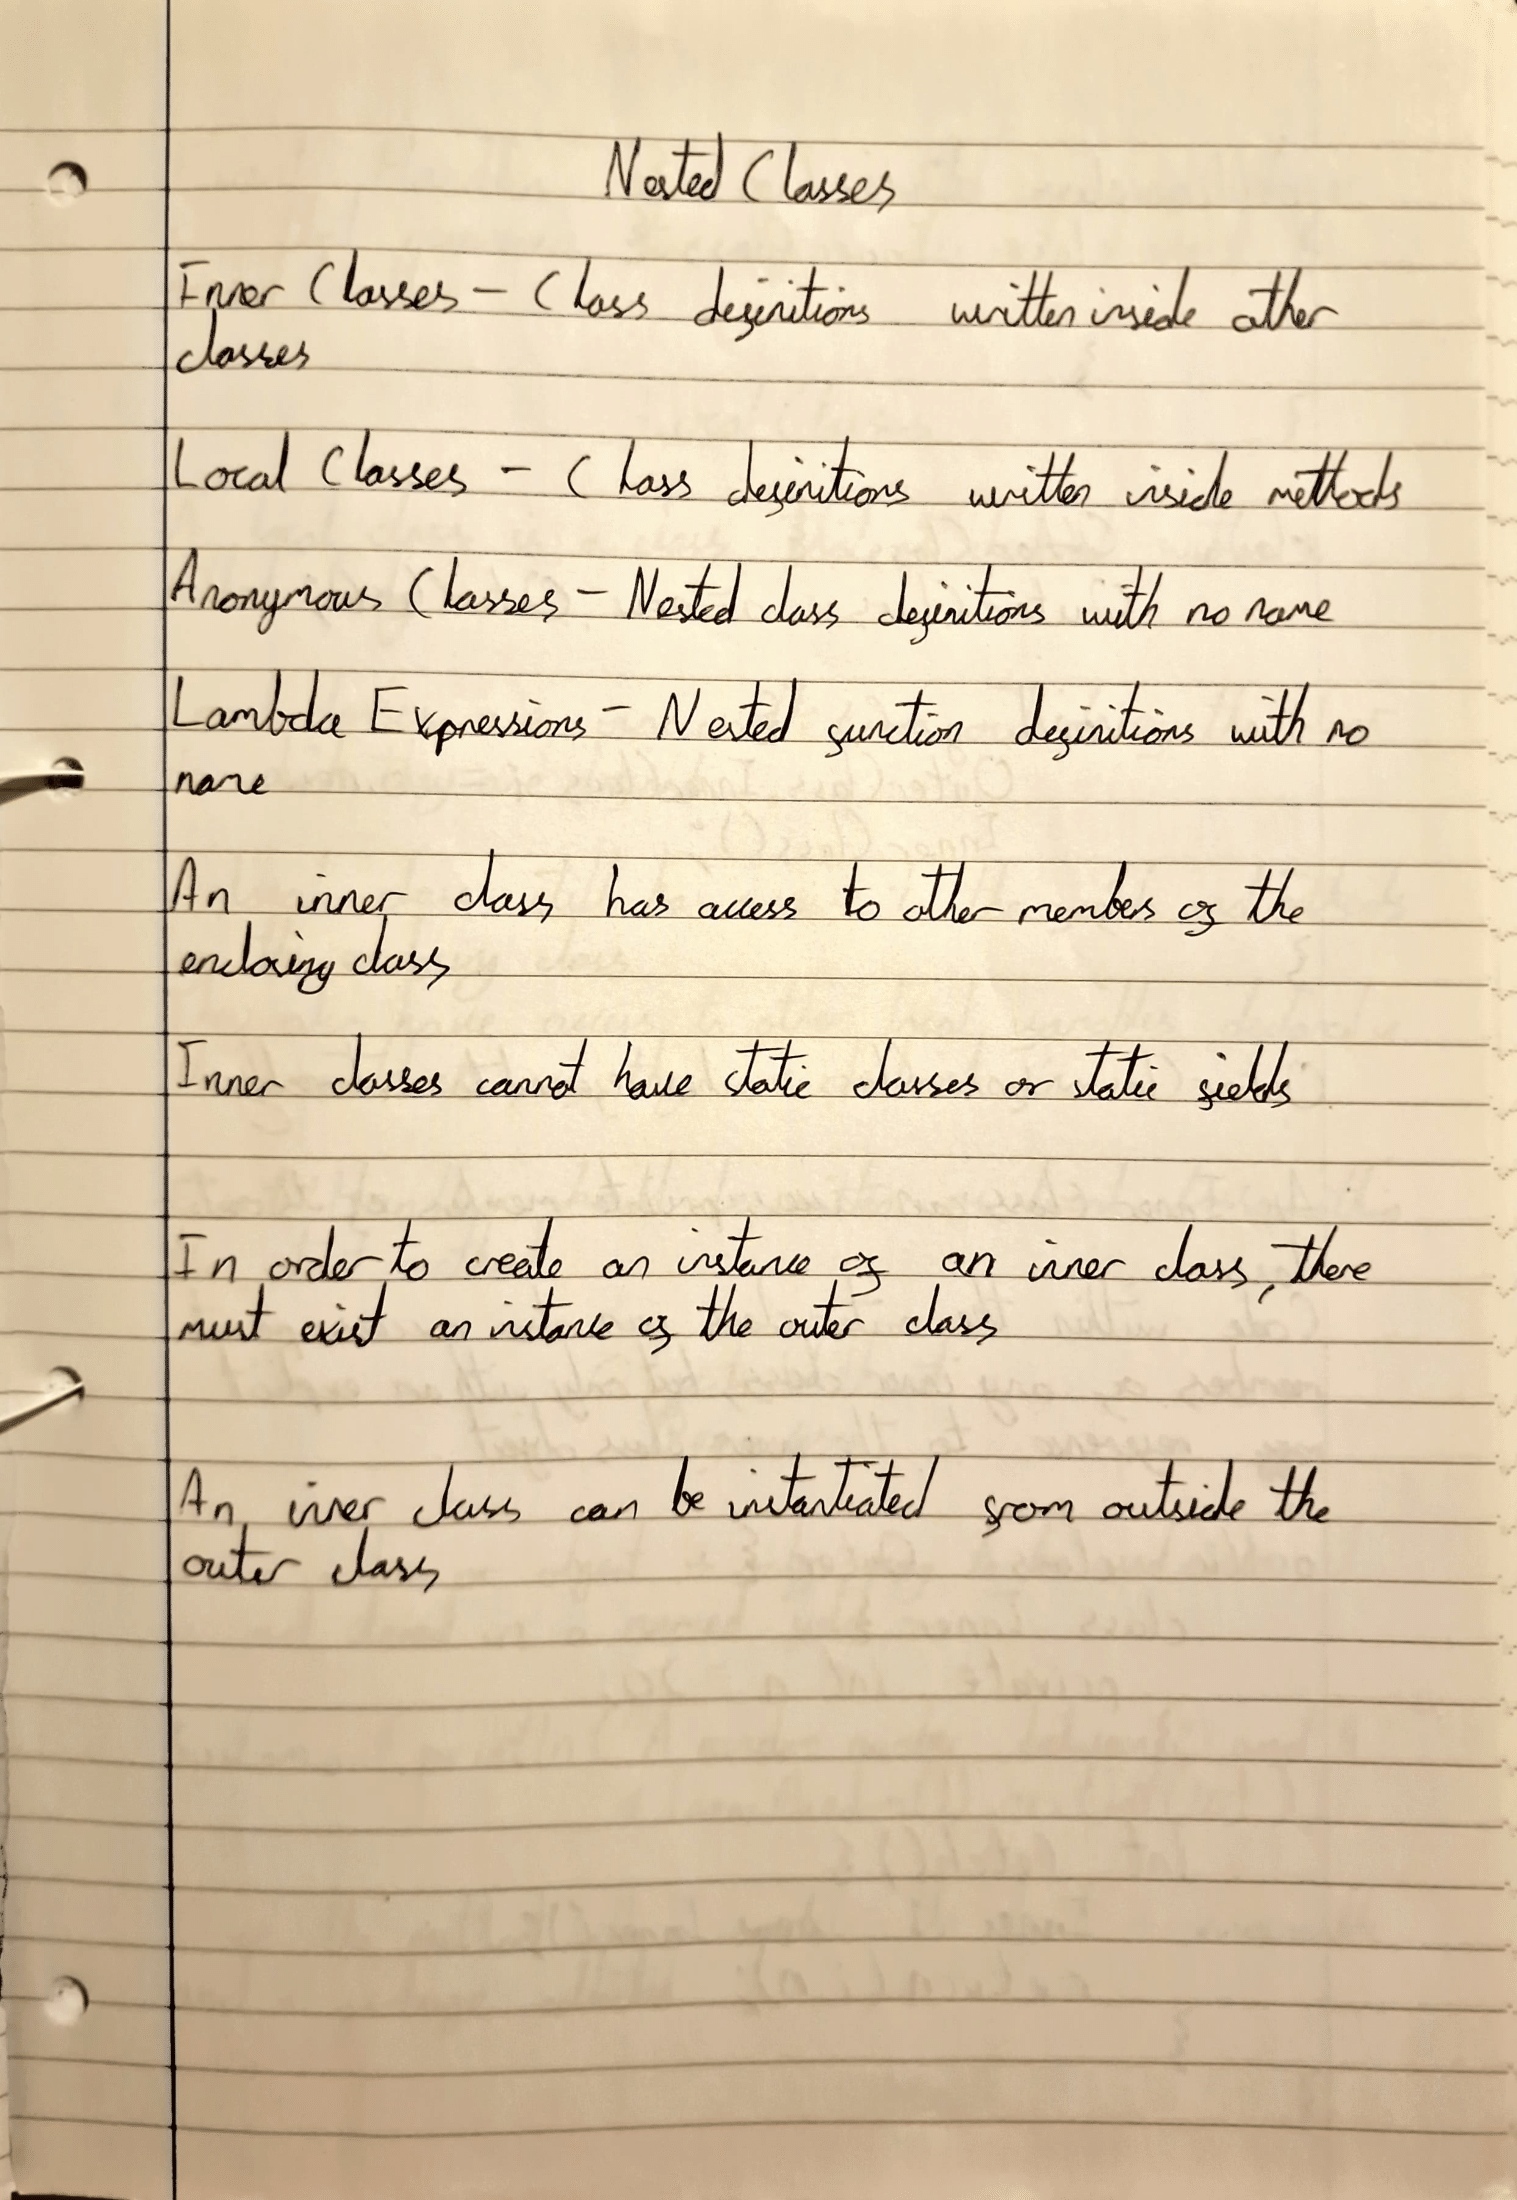 Nested Classes
Inner Classes - Class definitions written inside other
classes
Local Classes - Class definitions written inside methods
Anonymous Classes - Nested class definitions with no name
Lambda Expressions - Nested function definitions with no
name
An inner class has access to other members of the
enclosing class
Inner classes cannot have static classes or static fields
In order to create an instance of an inner class, there
must exist an instance of the outer class
An inner class can be instantiated from outside the
outer class